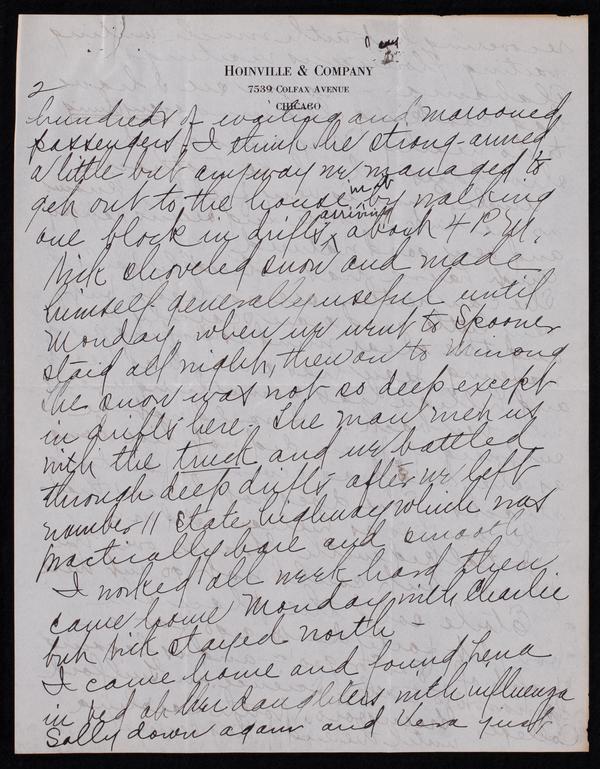 HOINVILLE & COMPANY
7539 COLFAX AVENUE
CHICAGO
2
hundreds of waiting and marooned
passengers, I think he strong-armed
a little but anyway we managed to
get out to the house by walking
one block in drifts, arriving about 4 P.M.
Nick shoveled snow and made
himself generally useful until
Monday when we went to Spooner
staid all night, then on to Minong
The snow was not so deep except
in drifts here. The man met us
with the truck and we battled
through deep drifts after we left
number 11 state highway which was
practically bare and smooth
I worked all week hard then
came home Monday with Charlie
but Nick stayed north
I came home and found Lena
in bed at her daughters with influenza
Sally down again and Vera just